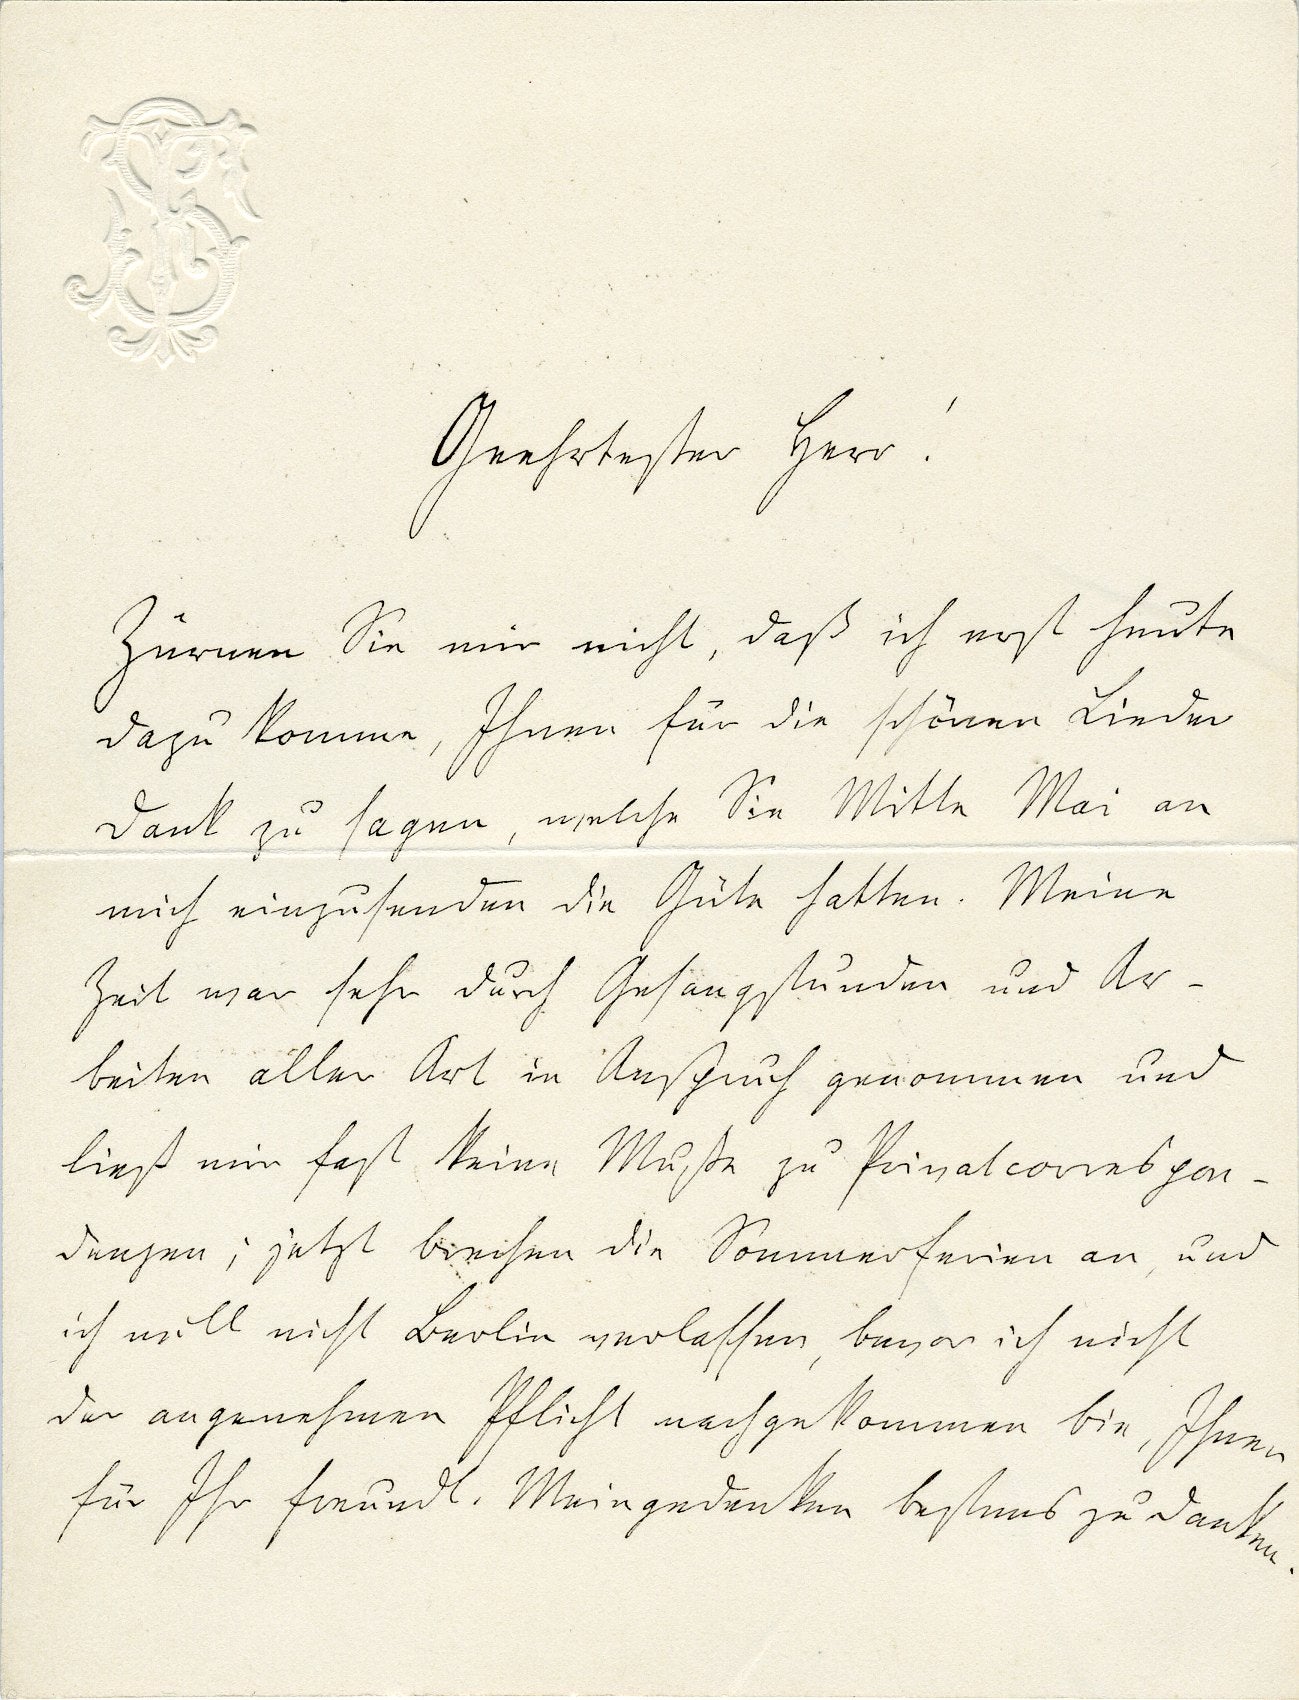 Geehrtester Herr!
Zürnen Sie mir nicht, daß ich erst heute
dazu komme, Ihnen für die schönen Lieder
Dank zu sagen, welche Sie Mitte Mai an
mich einzusenden die Güte hatten. Meine
Zeit war sehr durch Gesangstunden und Ar-
beiten aller Art in Anspruch genommen und
ließ mir fast keine Muße zu Privatcorrespon-
denzen; jetzt brechen die Sommerferien an, und
ich will nicht Berlin verlassen, bevor ich nicht
der angenehmen Pflicht nachgekommen bin, Ihnen
für Ihr freundl. Meingedenken bestens zu danken.